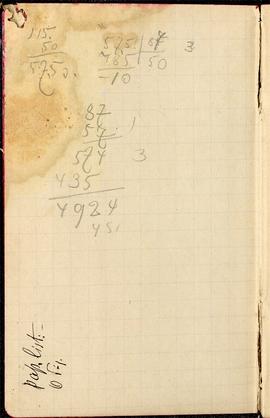 23
115.
50
5750.
575 87
765 50
-10
3
87
57 1
574 3
435
4924
451
pap. list:-